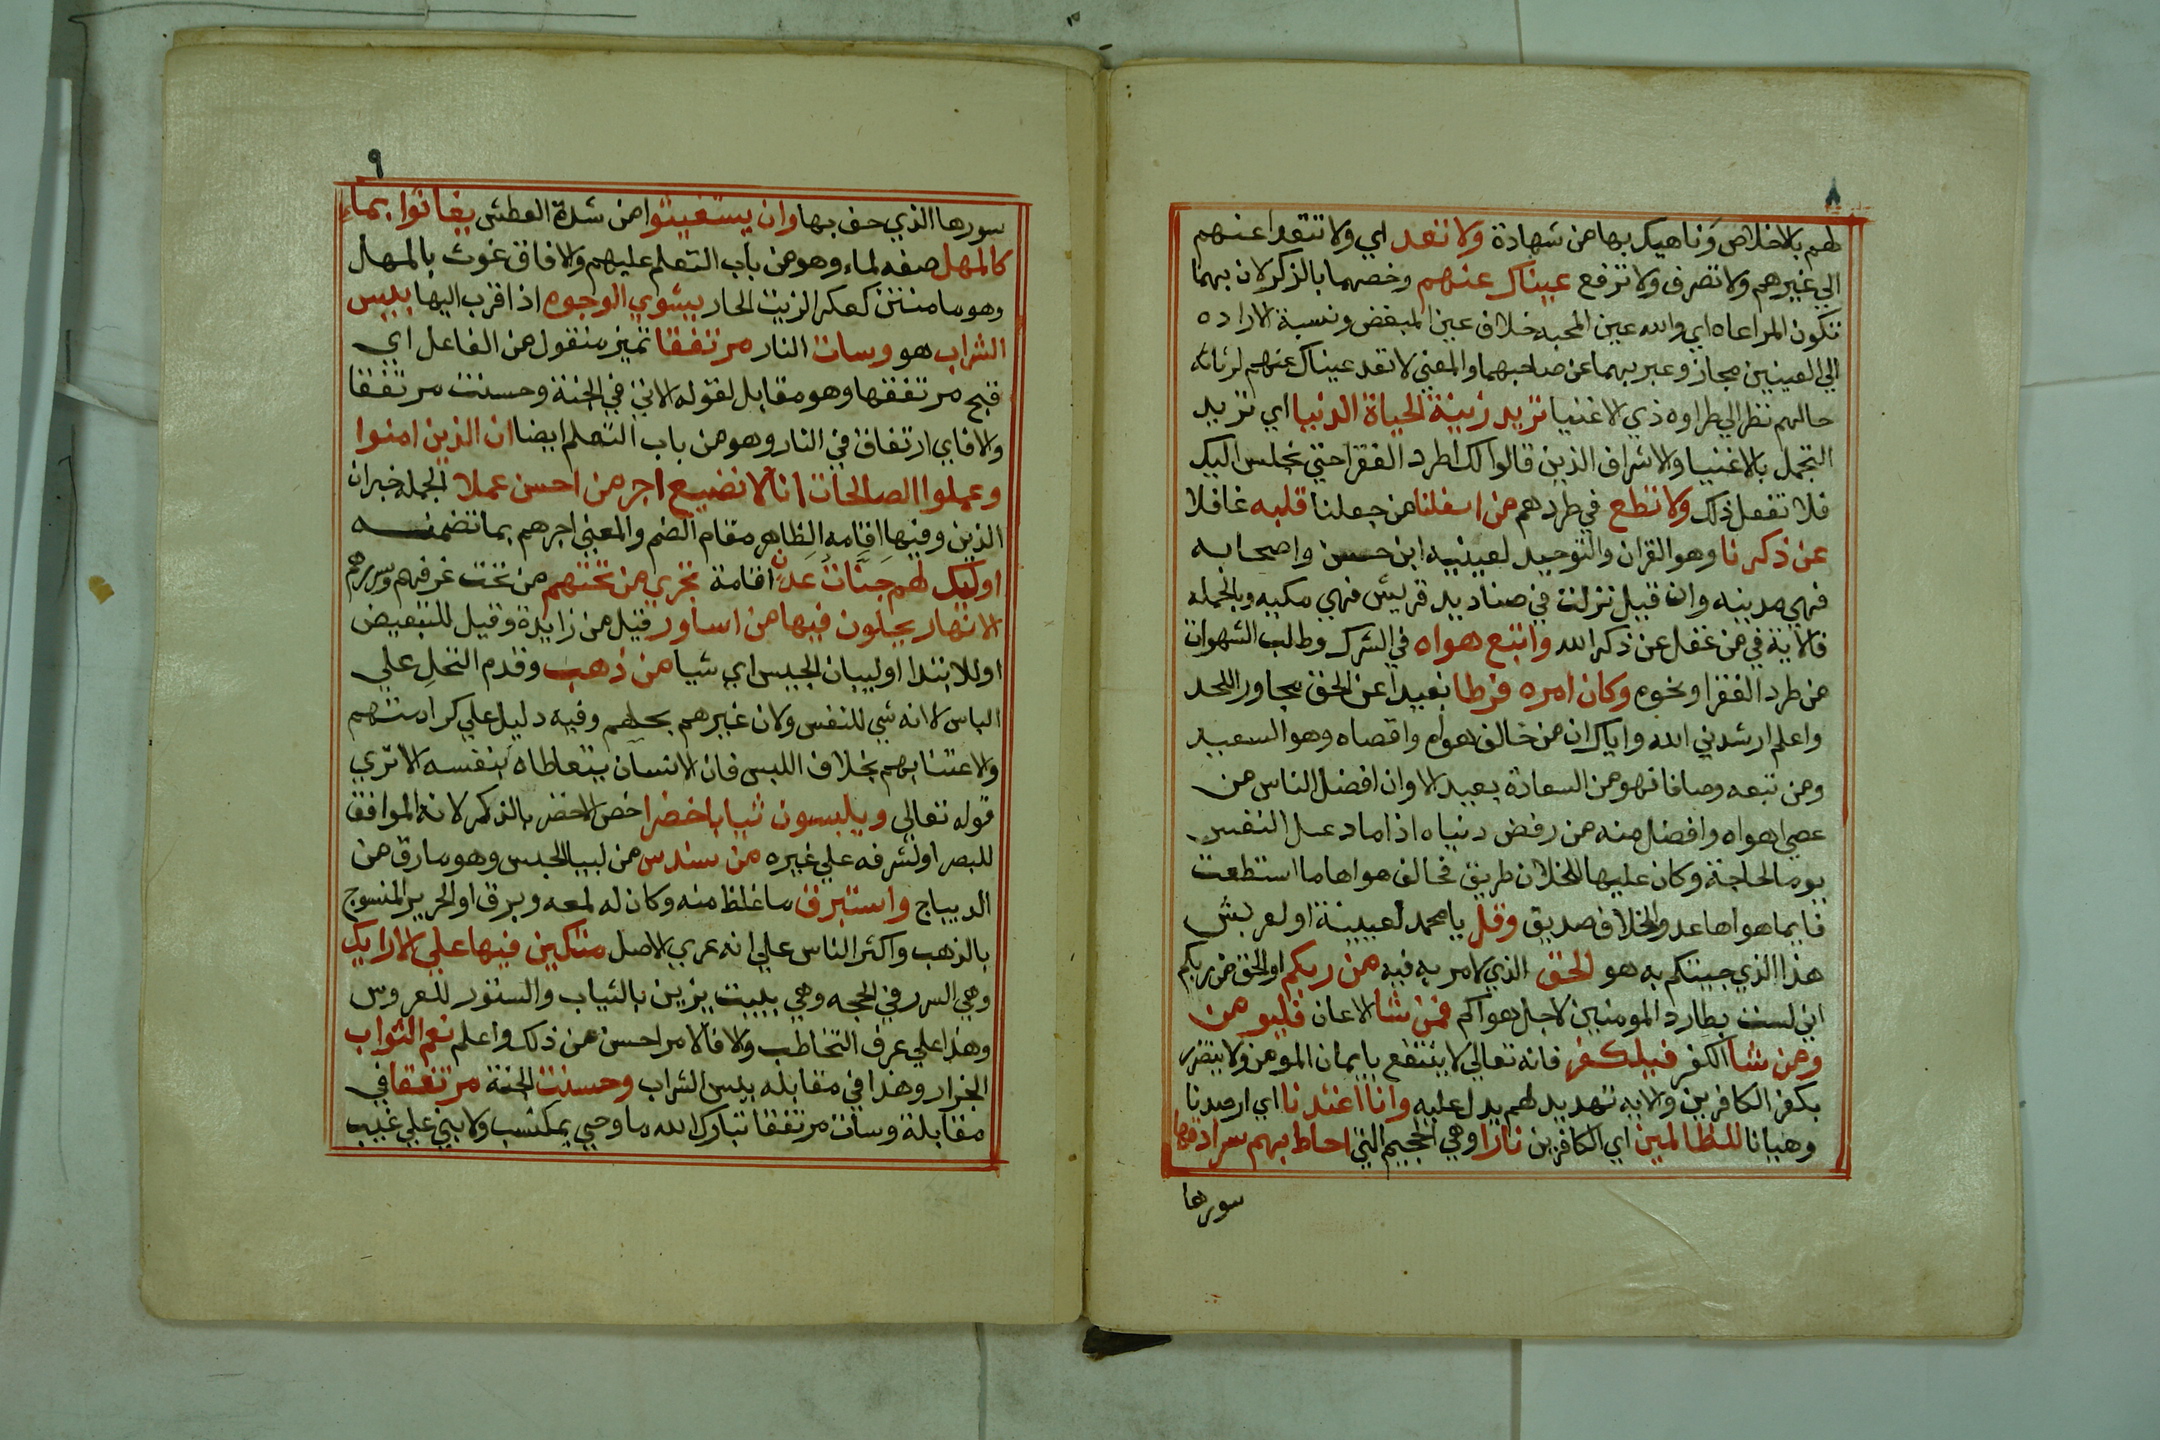 ٨
لهم بالاخلاص وناهيك بها من شهادة ولا تعد اي ولا تتعدا عنهم
الي غيرهم ولا تصرف ولا ترفع عيناك عنهم وخصهما بالذكر لان بهما
تكون المراعاه اي والله عين المحبه خلاف عين المبغض ونسبة الاراده
الي العينين مجاز وعبر بهما عن صاحبهما والمعني لا تعد عيناك عنهم لرثاثة
حالهم نظر الي طراوه ذي الاغنيا تريد زينة الحياة الدنيا اي تريد
التجمل بالاغنيا والاشراف الذين قالوا لك اطرد الفقرا حتي نجلس اليك
فلا تفعل ذلك ولا تطع في طردهم من اغفلنا من جعلنا قلبه غافلا
عن ذكرنا وهو القران والتوحيد لعيينه ابن حسن واصحابه
فهي مدينه وان قيل نزلت في صناديد قريش فهي مكيه وبالجمله
فالاية في من غفل عن ذكر الله واتبع هواه في الشرك وطالب الشهوات
من طرد الفقرا ونحوه وكان امره فرطا بعيدا عن الحق مجاور اللحد
واعلم ارشدني الله واياك ان من خالف هواه واقصاه وهو السعيد
ومن تبعه وصافا فهو من السعادة بعيد الا وان افضل الناس من
عصي هواه وافضل منه من رفض دنياه اذا ما دعل النفس
يوما لحاجة وكان عليها للخلان طريق فخالف هواها ما استطعت
فايما هواها عدو والخلاف صديق وقل يا محمد لعيينة او لقريش
هذا الذي جيتكم به هو الحق الذي لا مريه فيه من ربكم او الحق من ربكم
اني لست بطارد المومنين لاجل هواكم فمن شا الايمان فليومن
ومن شا الكفر فيلكفر فانه تعالي لا ينتفع بايمان المومن ولا يتضرر
بكفر الكافرين والايه تهديد لهم يدل عليه وانا اعتدنا اي ارصدنا
وهيانا للظالمين اي الكافرين نارا وهي الجحيم التي احاط بهم سرادقها
سورها
٩
سورها الذي حف بها وان يستغيثوا من شدة العطش يغاثوا بماء
كالمهل صفه لماء وهو من باب التعلم عليهم والا فاق غوث بالمهل
وهو ما منتن كعكر الزيت الحار يشوي الوجوه اذا قرب اليها بليس
الشراب هو وسات النار مرتفقا تميز منقول من الفاعل اي
قبح مرتفقها وهو مقابل لقوله الاتي في الجنة وحسنت مرتفقا
والا فاي ارتفاق في النار وهو من باب التعلم ايضا ان الذين امنوا
وعملوا الصالحات انا لا نضيع اجر من احسن عملا الجمله خبران
الذين وفيها اقامه الظاهر مقام الضم والمعني اجرهم بما تضمنه
اوليك لهم جنات عدن اقامة تجري من تحتهم من تحت غرفهم وسررهم
الانهار يحلون فيها من اساور قيل من زايدة وقيل للتبعيض
او للابتدا او لبيان الجيس اي شيا من ذهب وقدم التحل علي
الباس لانه شي للنفس ولان غيرهم يحلهم وفيه دليل علي كرامتهم
والاعتنا بهم بخلاف اللبس فان الانسان يتعاطاه بنفسه الا تري
قوله تعالي ويلبسون ثيابا خضرا خص الاخضر بالذكر لانه الموافق
للبصر او لشرفه علي غيره من سندس من لبيا الجيس وهو مارق من
الديباج واستبرق ما غلظ منه وكان له لمعه وبرق او الحرير المنسوج
بالذهب واكثر الناس علي انه عربي الاصل متكين فيها علي الارايك
وهي السرر في الحجه وهي بيت يزين بالثياب والستور للعروس
وهذا علي عرف التخاطب والا فالامر احسن من ذلك واعلم نعم الثواب
الجزار وهذا في مقابله بيس الشراب وحسنت الجنة مرتفقا في
مقابلة وسات مرتفقا تبارك الله ما وحي بمكتسب ولا بني علي غيب